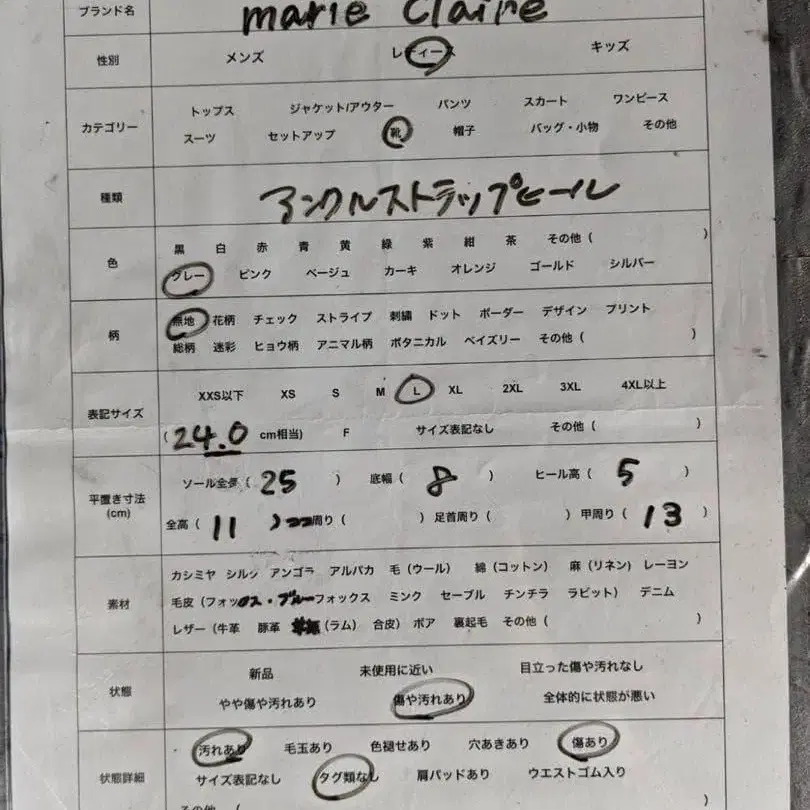 ブランド名 marie claire
性別 メンズ レディース キッズ
カテゴリー トップス ジャケット/アウター パンツ スカート ワンピース
スーツ セットアップ 靴 帽子 バッグ・小物 その他
種類 アンクルストラップヒール
色 黒 白 赤 青 黄 緑 紫 紺 茶 その他 ( )
グレー ピンク ベージュ カーキ オレンジ ゴールド シルバー
柄 無地 花柄 チェック ストライプ 刺繍 ドット ボーダー デザイン プリント
総柄 迷彩 ヒョウ柄 アニマル柄 ボタニカル ペイズリー その他 ( )
表記サイズ XXS以下 XS S M L XL 2XL 3XL 4XL以上
( 24.0 cm相当) F サイズ表記なし その他 (
平置き寸法 (cm) ソール全長 ( 25 ) 底幅 ( 8 ) ヒール高 ( 5 )
全高 ( 11 ) 周り ( ) 足首周り ( ) 甲周り ( 13 )
素材 カシミヤ シルク アンゴラ アルパカ 毛 (ウール) 綿 (コットン) 麻 (リネン) レーヨン
毛皮 (フォックス・ブルーフォックス ミンク セーブル チンチラ ラビット) デニム
レザー (牛革 豚革 (ラム) 合皮) ボア 裏起毛 その他 ( )
状態 新品 未使用に近い 目立った傷や汚れなし
やや傷や汚れあり 傷や汚れあり 全体的に状態が悪い
状態詳細 汚れあり 毛玉あり 色褪せあり 穴あきあり 傷あり
サイズ表記なし タグ類なし 肩パッドあり ウエストゴム入り
その他 ( )